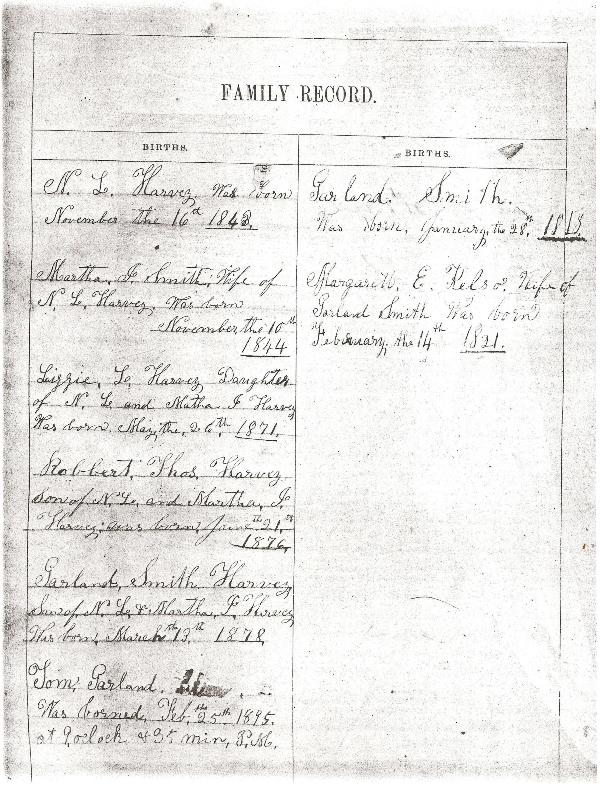 FAMILY RECORD.
BIRTHS.
N. L. Harvey Was born
November the 16th 1842.
Martha. J. Smith, Wife of
N. L. Harvey, Was born
November the 10th
1844
Lizzie, L. Harvey Daughter
of N. L. and Matha J Harvey
Was born. May, the, 26th, 1871,
Robbert, Thos, Harvey
son of N. L. and Martha. J.
Harvey was born, June 21,st
1876,
Garland, Smith Harvey
Son of, N. L. & Martha, J. Harvey
Was born, March 13th 1878,
Tom, Garland.
Was borned, Feb, the 25th 1895.
at 9,oclock & 35 min, P.M.
BIRTHS.
Garland. Smith.
Was born, January, the 28th, 1818,
Margarett. E. Kelso, Wife of
Garland Smith Was born
February, the 14th 1821.